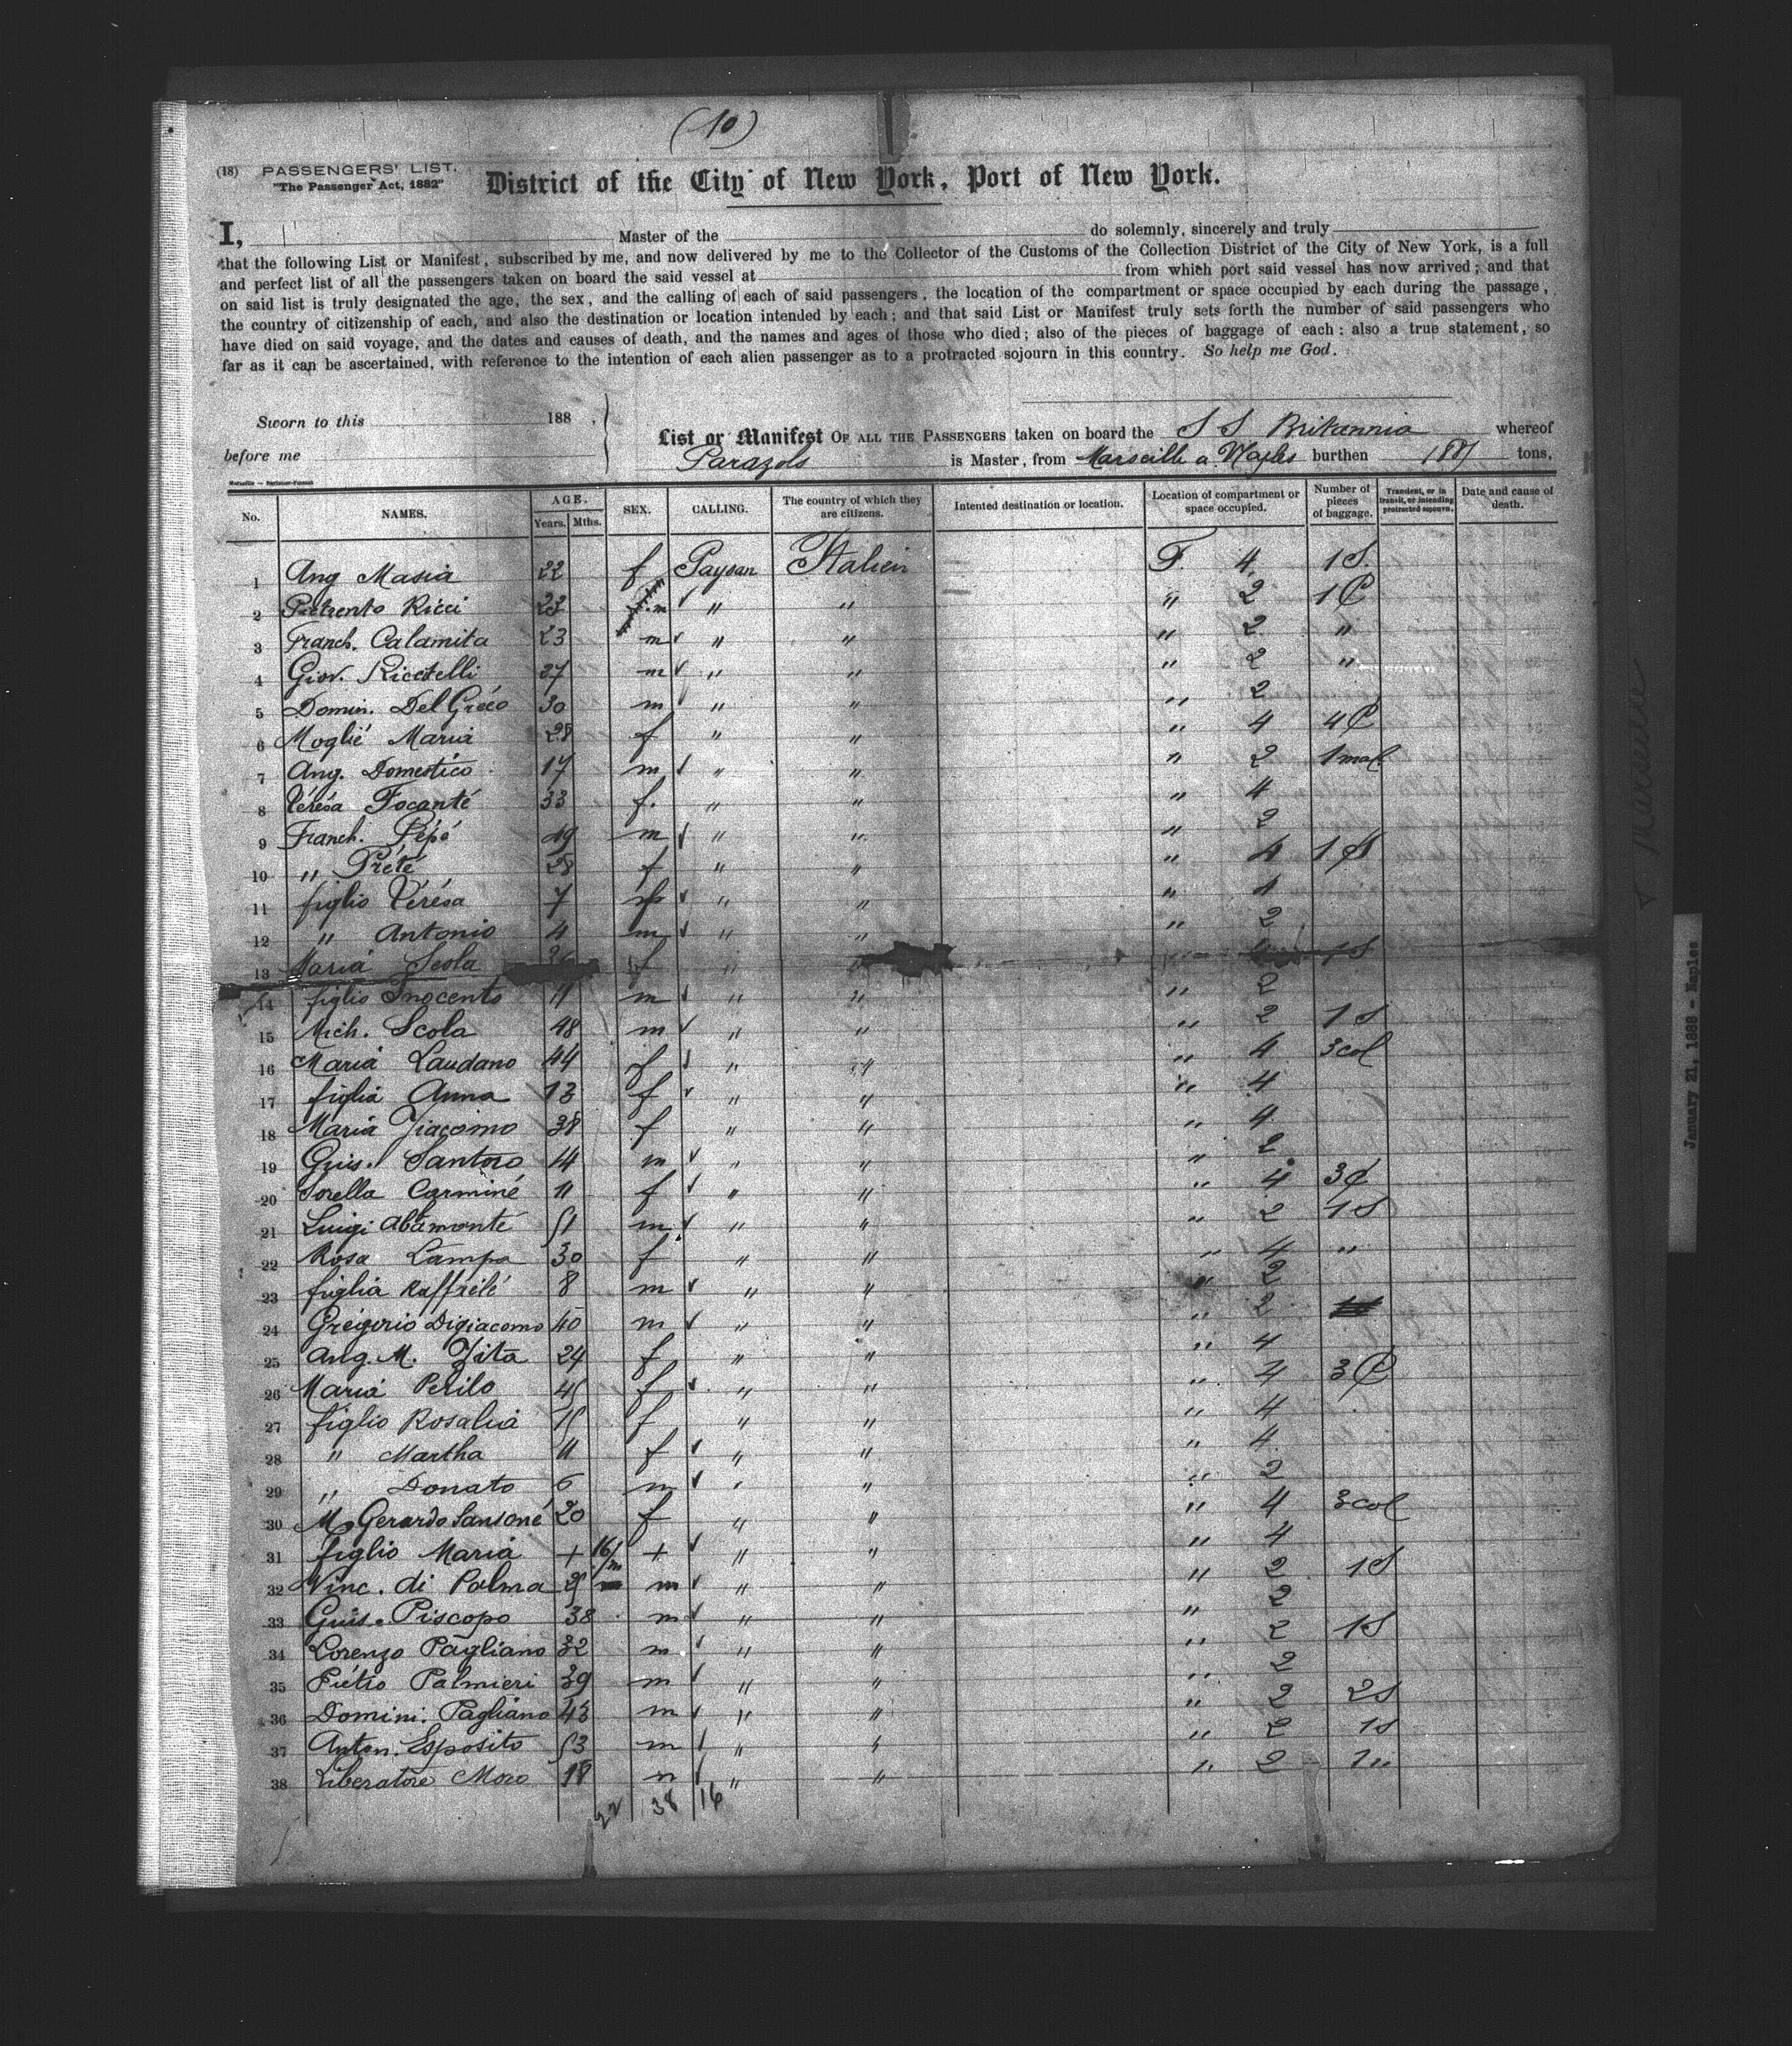 (10)
(18) PASSENGERS' LIST.
"The Passenger Act, 1882"
District of the City of New York, Port of New York.
I, Master of the do solemnly, sincerely and truly
that the following List or Manifest, subscribed by me, and now delivered by me to the Collector of the Customs of the Collection District of the City of New York, is a full
and perfect list of all the passengers taken on board the said vessel at from which port said vessel has now arrived; and that
on said list is truly designated the age, the sex, and the calling of each of said passengers, the location of the compartment or space occupied by each during the passage,
the country of citizenship of each, and also the destination or location intended by each; and that said List or Manifest truly sets forth the number of said passengers who
have died on said voyage, and the dates and causes of death, and the names and ages of those who died; also of the pieces of baggage of each: also a true statement, so
far as it can be ascertained, with reference to the intention of each alien passenger as to a protracted sojourn in this country. So help me God.
Sworn to this 188 ,
before me
List or Manifest OF ALL THE PASSENGERS taken on board the S S Britannia whereof
Parazols is Master, from Marseille a Naples burthen tons,
No. NAMES. AGE. Years. Mths. SEX. CALLING. The country of which they are citizens. Intented destination or location. Location of compartment or space occupied. Number of pieces of baggage. Transient, or in transit, or intending protracted sojourn. Date and cause of death.
1 Ang Masia 22 f Paysan Italien F. 4 1 S.
2 Ricci 23 m " " " 2 1 C
3 Franch. Calamita 23 m " " " 2 "
4 Giov. Riccitelli 27 m " " " 2 "
5 Domin. Del Gréco 30 m " " " 2
6 Moglié Maria 28 f " " " 4 4 C
7 Ang. Domestico 17 m " " " 2 1 mal
8 Térésa Focanté 33 f. " " " 4
9 Franch. Pépé 49 m " " " 2
10 " Prété 28 f " " " 4 1 S
11 figlio Térésa 7 " " " 4
12 " Antonio 4 m " " " 2
13 Maria Scola f " " " 1 S
14 figlio Inocento 11 m " " " 2
15 Mich. Scola 48 m " " " 2 1 S
16 Maria Laudano 44 f " " " 4 3 col
17 figlia Anna 13 f " " " 4
18 Maria Giacomo 38 f " " " 4
19 Guis. Santoro 14 m " " " 2
20 Sorella Carminé 11 f " " " 4 3 C
21 Luigi Abamonté 51 m " " " 2 1 S
22 Rosa Lampa 30 f " " " 4 "
23 figlia Raffaélé 8 m " " " 2
24 Grégorio Digiacomo 40 m " " " 2
25 Ang. M. Zita 24 f " " " 4
26 Maria Perilo 45 f " " " 4 3 C
27 figlio Rosalia 15 f " " " 4
28 " Martha 11 f " " " 4
29 " Donato 6 m " " " 2
30 M Gerardo Sansoné 20 f " " " 4 3 col
31 figlio Maria + 16/m + " " " 4
32 Vinc. di Palma 25 m " " " 2 1 S
33 Guis. Piscopo 38 m " " " 2
34 Lorenzo Pagliano 32 m " " " 2 1 S
35 Piétro Palmieri 39 m " " " 2
36 Domini. Pagliano 43 m " " " 2 2 S
37 Anton. Esposito 53 m " " " 2 1 S
38 Liberatore Moro 18 m " " " 2 1 "
22 38 16
January 21, 1888 - Naples